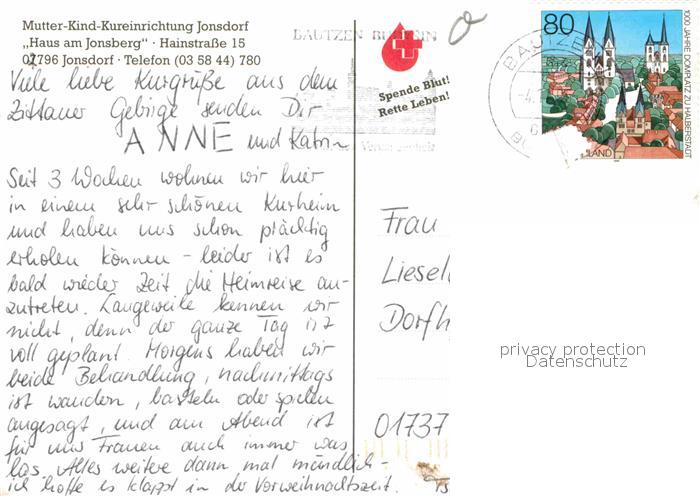 Mutter-Kind-Kureinrichtung Jonsdorf
„Haus am Jonsberg“ · Hainstraße 15
02796 Jonsdorf · Telefon (03 58 44) 780
Viele liebe Kurgrüße aus dem
Zittauer Gebirge senden Dir
ANNE und Katrin
Seit 3 Wochen wohnen wir hier
in einem sehr schönen Kurheim
und haben uns schon prächtig
erholen können – leider ist es
bald wieder Zeit die Heimreise an-
zutreten. Langeweile kennen wir
nicht, denn der ganze Tag ist
voll geplant. Morgens haben wir
beide Behandlung, nachmittags
ist wandern, basteln oder spielen
angesagt, und am Abend ist
für uns Frauen auch immer was
los. Alles weitere dann mal mündlich –
ich hoffe es klappt in der Vorweihnachtszeit.
BAUTZEN
Spende Blut!
Rette Leben!
BAUTZE
80
1000 JAHRE DOMPLATZ ZU HALBERSTADT
LAND
Frau
Liesel
Dorfh
01737
privacy protection
Datenschutz